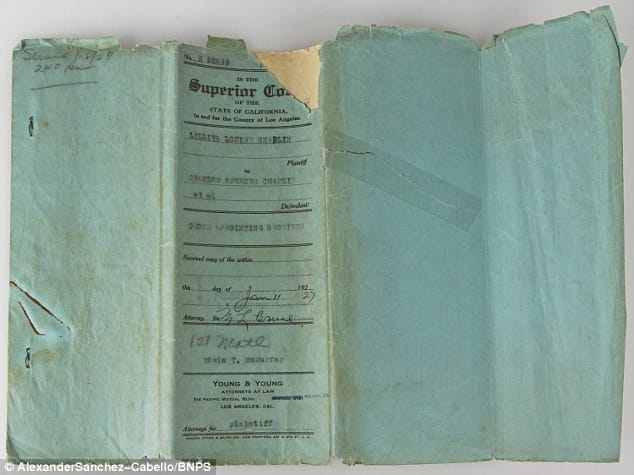 Served 1/12/27
2:40 pm
No. D
IN THE
Superior Co
OF THE
STATE OF CALIFORNIA,
In and for the County of Los Angeles.
LILLITA LOUISE CHAPLIN
Plaintiff
vs
CHARLES SPENCER CHAPLIN
et al
Defendant
ORDER APPOINTING RECEIVER
Received copy of the within
this day of 192
Jan 11 27
Attorney for
Edwin T. McMurray
YOUNG & YOUNG
ATTORNEYS AT LAW
PACIFIC MUTUAL BLDG.
LOS ANGELES, CAL.
Attorneys for plaintiff
© AlexanderSanchez-Cabello/BNPS